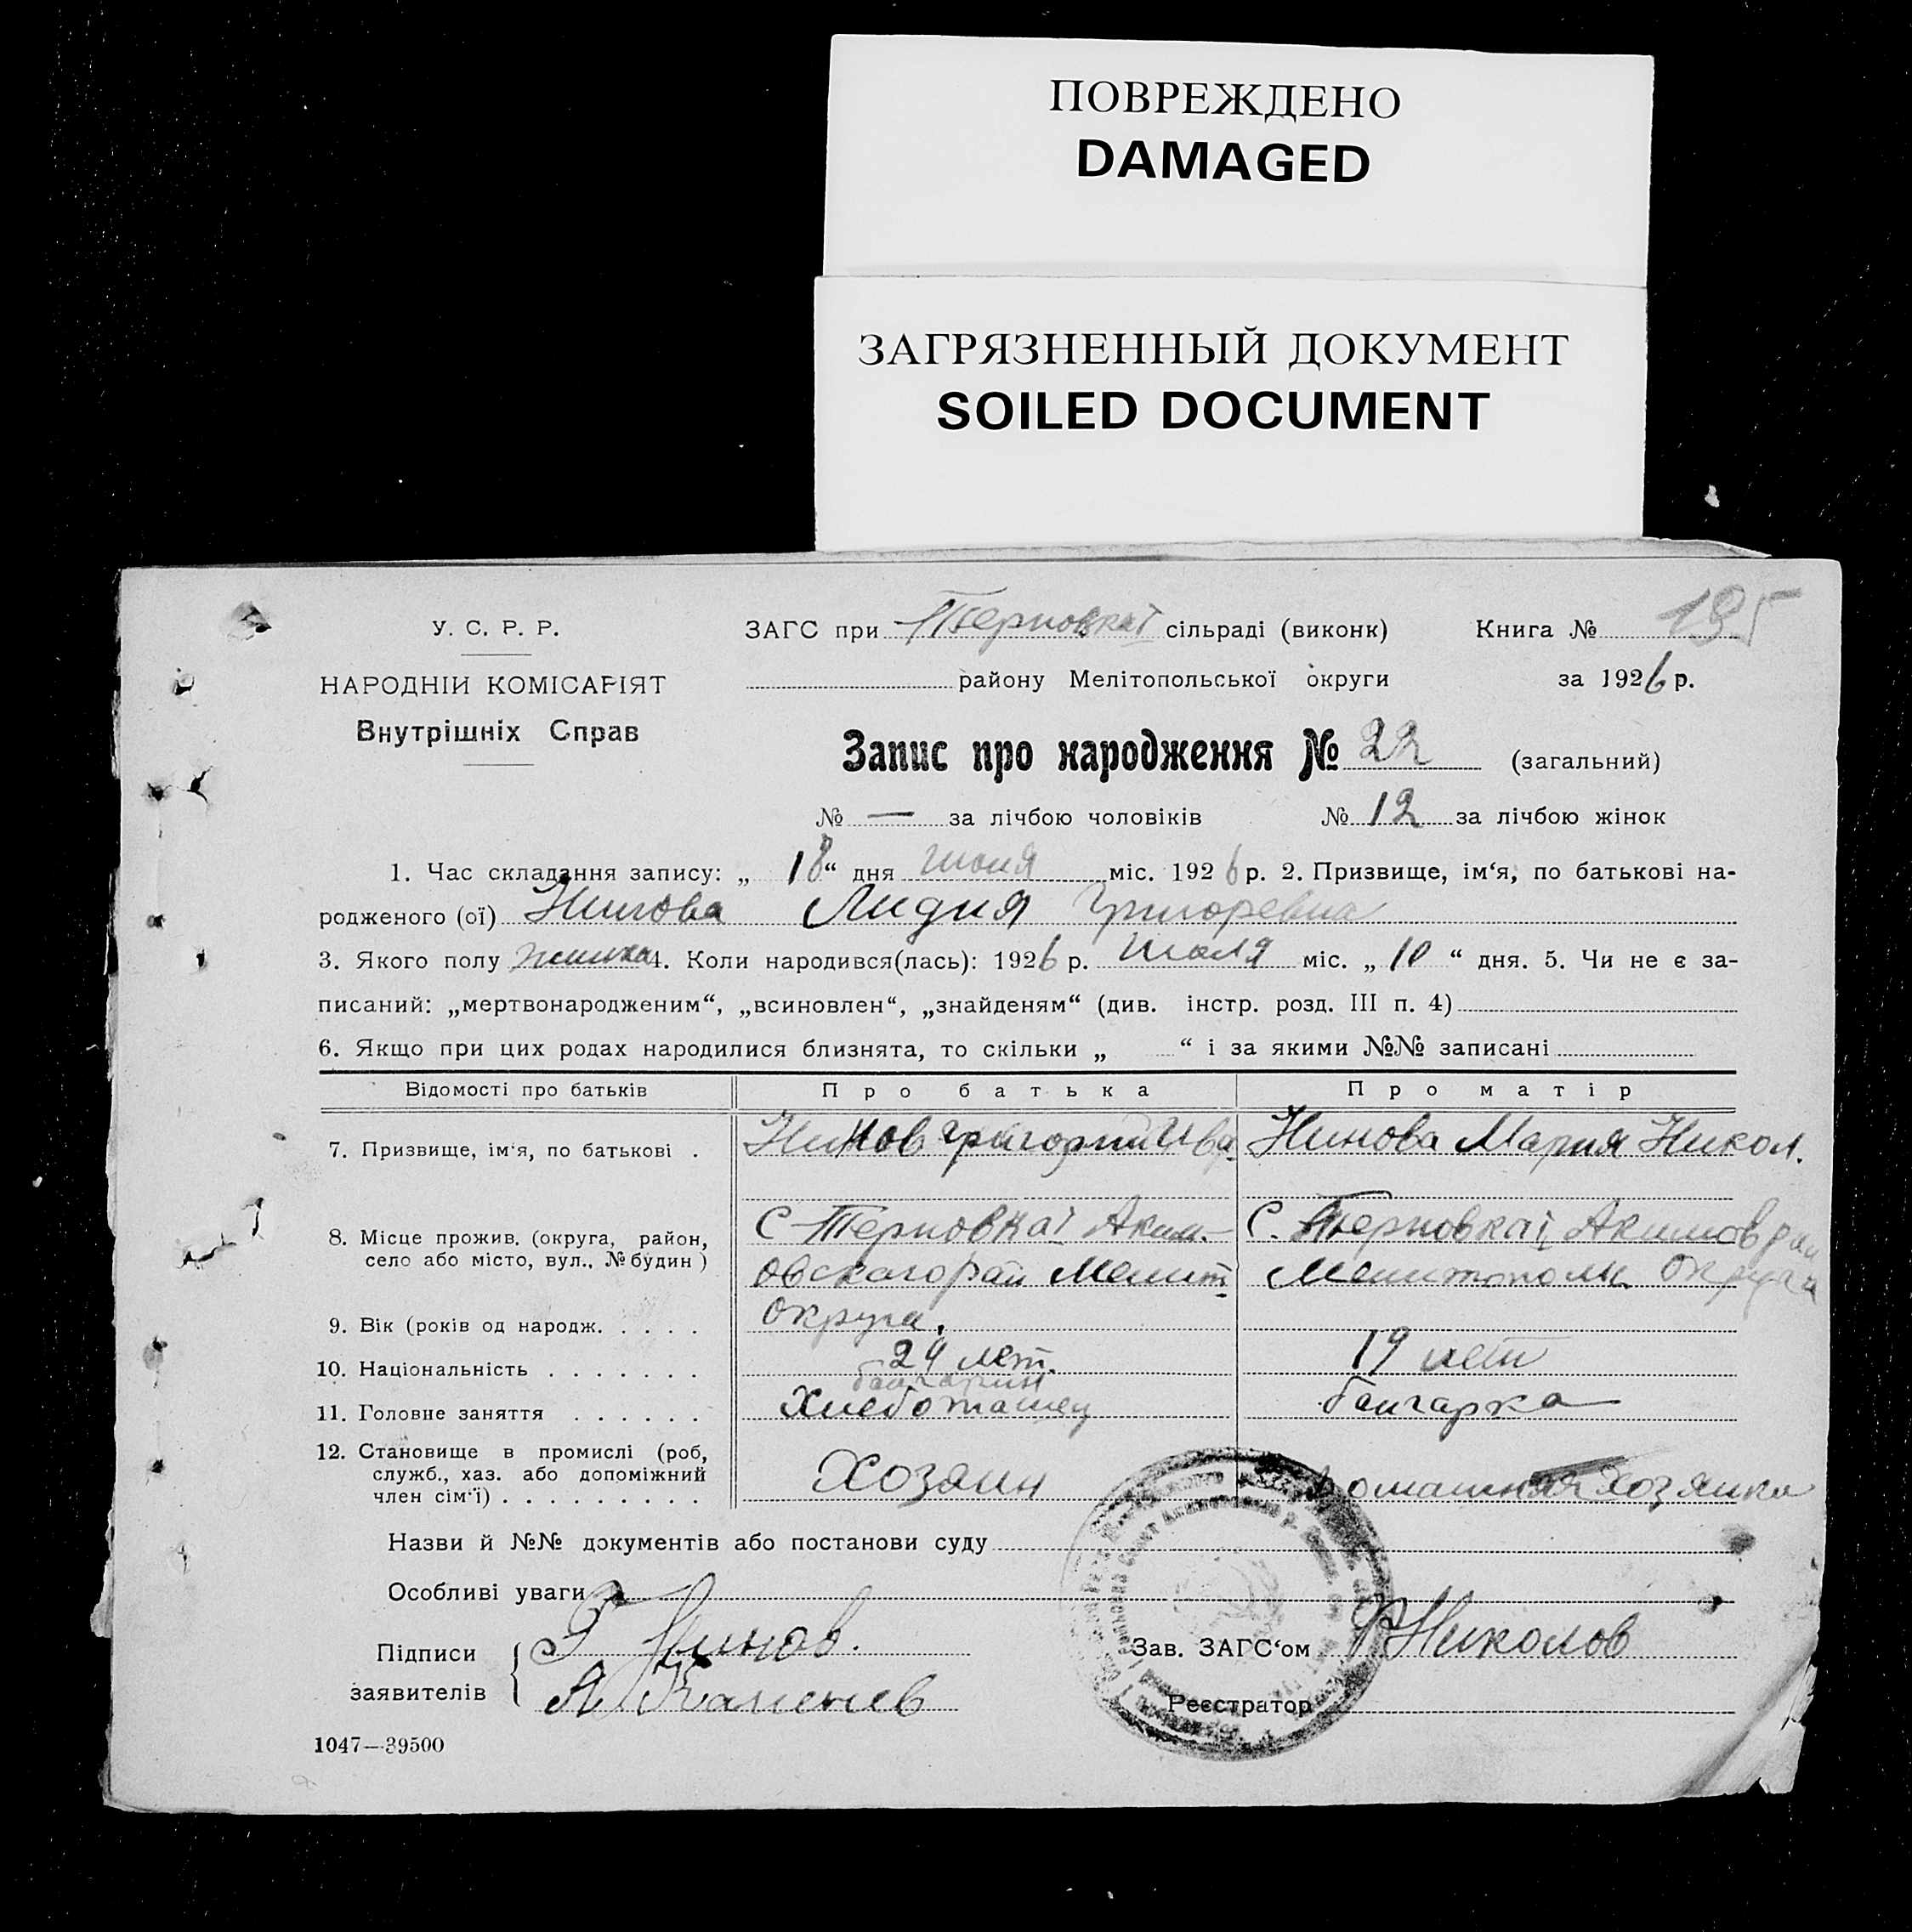 ПОВРЕЖДЕНО
DAMAGED
ЗАГРЯЗНЕННЫЙ ДОКУМЕНТ
SOILED DOCUMENT
У. С. Р. Р.
НАРОДНІЙ КОМІСАРІЯТ
Внутрішніх Справ
ЗАГС при Терновкаї сільраді (виконк) Книга № 195
району Мелітопольської округи за 1926 р.
Запис про народження № 22 (загальний)
№ — за лічбою чоловіків № 12 за лічбою жінок
1. Час складання запису: „ 18“ дня июля міс. 1926 р. 2. Призвище, ім‘я, по батькові на-
родженого (ої) Нинова Лидия Григоревна
3. Якого полу 4. Коли народився(лась): 1926 р. июля міс. „ 10 “ дня. 5. Чи не є за-
писаний: „мертвонародженим“, „всиновлен“, „знайденям“ (див. інстр. розд. III п. 4)
6. Якщо при цих родах народилися близнята, то скільки „ “ і за якими №№ записані
Відомості про батьків Про батька Про матір
7. Призвище, ім‘я, по батькові . Нинов Григорий Ива. Нинова Мария Никол.
8. Місце прожив. (округа, район, село або місто, вул., № будин )
С Терновкаї Аким-
овскаго рай Мелит
округа.
С. Терновкаї Акимов рай
Мелитополь округа
9. Вік (років од народж. . . . . 24 лет. 19 лет
10. Національність . . . . . . . болгарин болгарка
11. Головне заняття . . . . . . Хлебопашец
12. Становище в промислі (роб,
служб., хаз. або допоміжний
член сім‘ї) . . . . . . . . . Хозяин Домашняя хозяйка
Назви й №№ документів або постанови суду
Особливі уваги
Підписи
заявителів
Г Нинов.
Я Каленев
Зав. ЗАГС‘ом Николов
Реєстратор
1047—39500